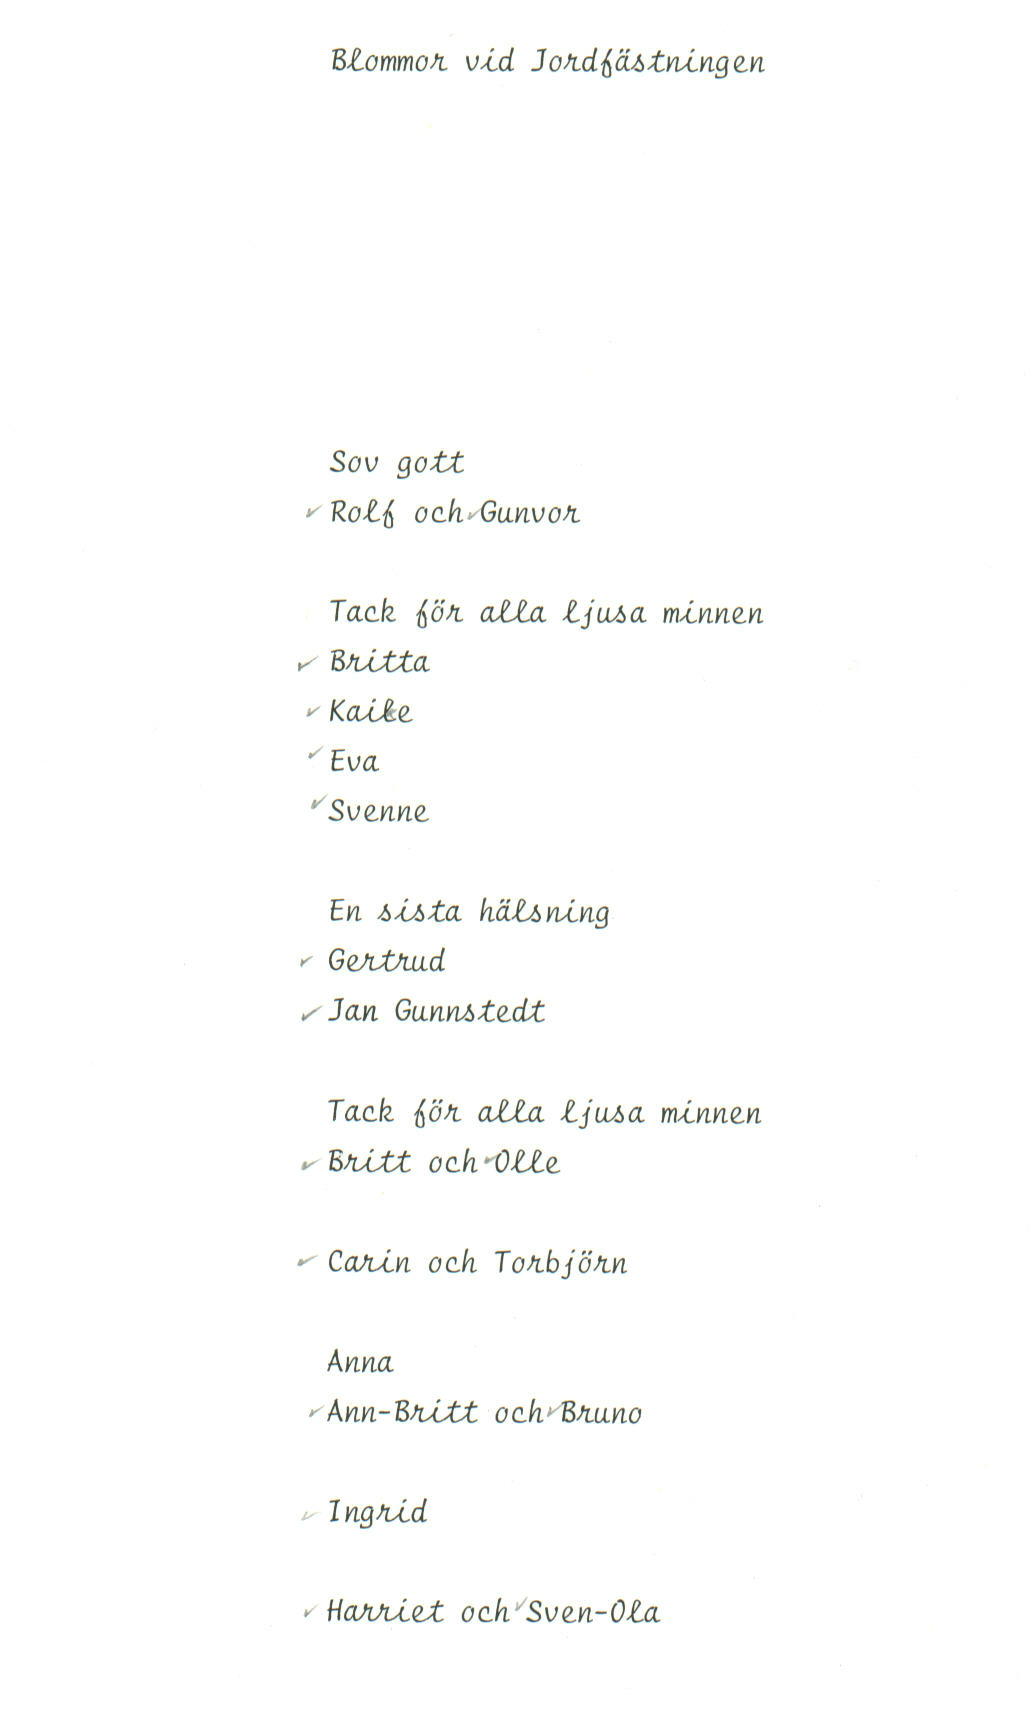 Blommor vid Jordfästningen
Sov gott
✓ Rolf och ✓ Gunvor
Tack för alla ljusa minnen
✓ Britta
✓ Kaike
✓ Eva
✓ Svenne
En sista hälsning
✓ Gertrud
✓ Jan Gunnstedt
Tack för alla ljusa minnen
✓ Britt och ✓ Olle
✓ Carin och Torbjörn
Anna
✓ Ann-Britt och ✓ Bruno
✓ Ingrid
✓ Harriet och ✓ Sven-Ola